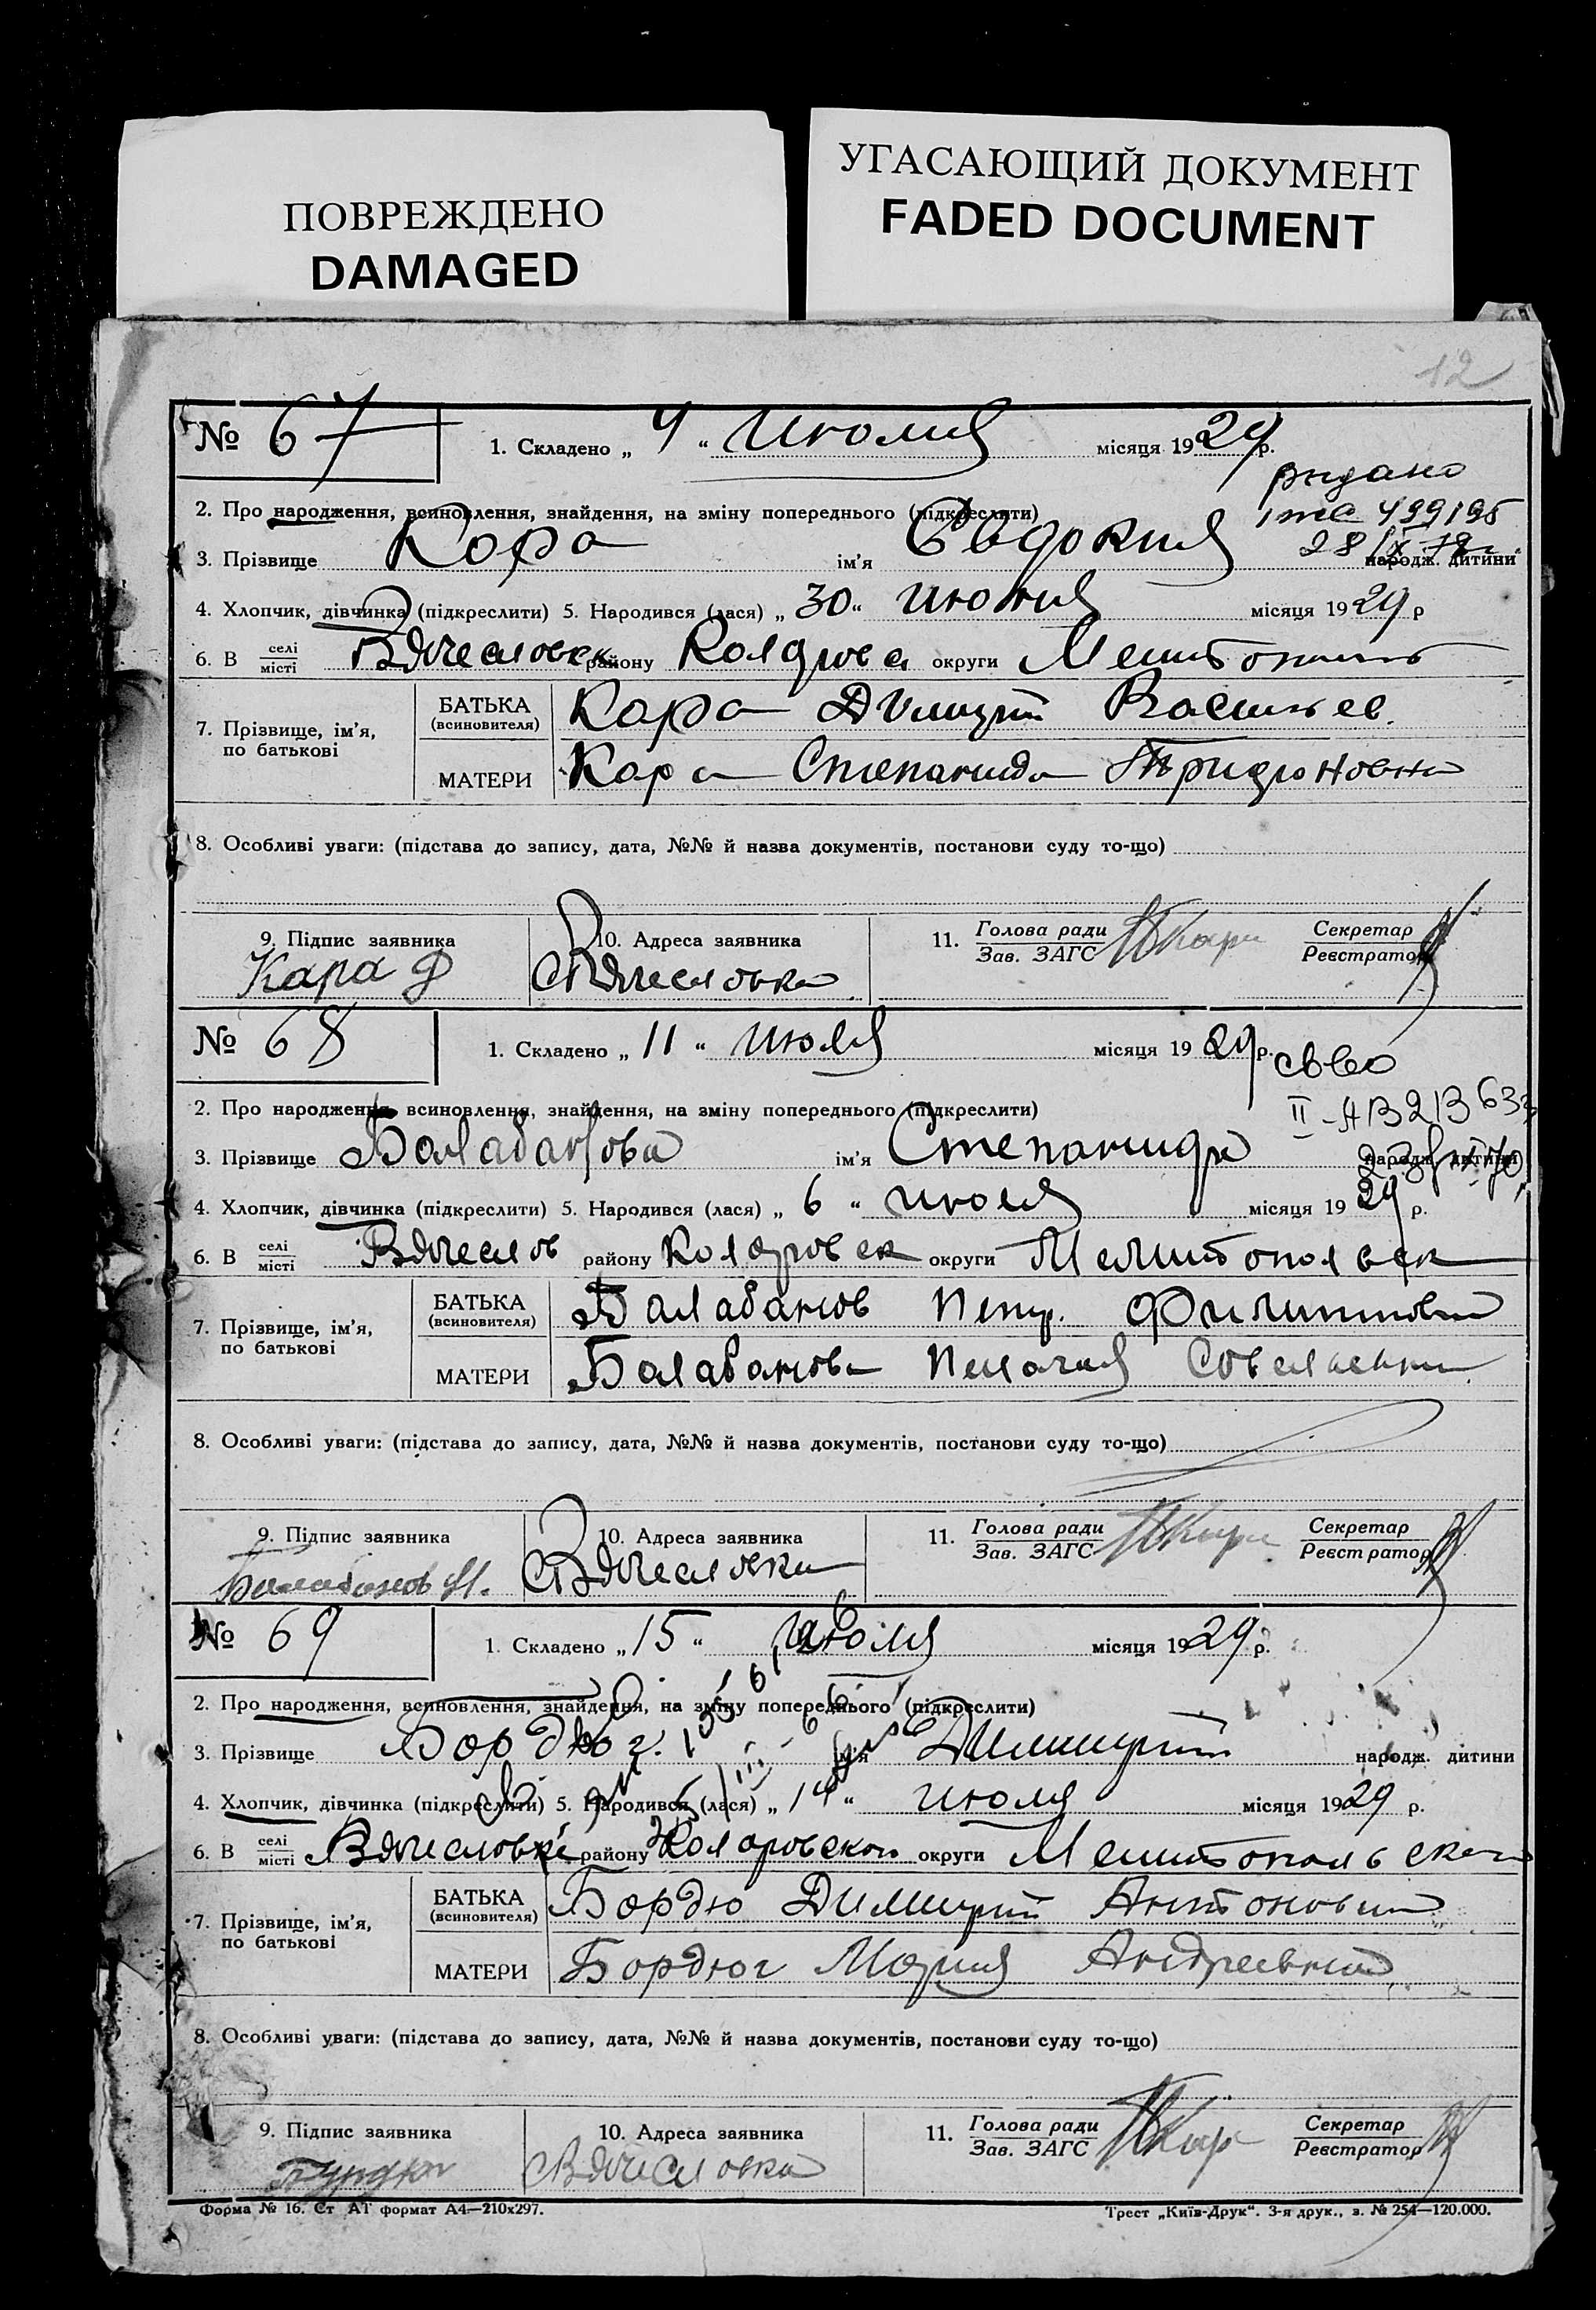 ПОВРЕЖДЕНО
DAMAGED
УГАСАЮЩИЙ ДОКУМЕНТ
FADED DOCUMENT
12
№ 67 1. Складено „ 4 “ Июлия місяця 1929 р.
выдано
2. Про народження, всиновлення, знайдення, на зміну попереднього (підкреслити) 499195
3. Прізвище Кара ім'я Евдокия народж. дитини
4. Хлопчик, дівчинка (підкреслити) 5. Народився (лася) „ 30 “ июния місяця 1929 р
6. В селі/місті Вячесловск району Коляров округи Мелитополь
7. Прізвище, ім'я, по батькові
БАТЬКА (всиновителя) Кара Димитрий Васильев.
МАТЕРИ Кара Степанида Трифоновна
8. Особливі уваги: (підстава до запису, дата, №№ й назва документів, постанови суду то-що)
9. Підпис заявника 10. Адреса заявника 11. Голова ради/Зав. ЗАГС Секретар/Реєстратор
Кара Ф С Вячесловка Кара
№ 68 1. Складено „ 11 “ июля місяця 1929 р.
св-во
2. Про народження, всиновлення, знайдення, на зміну попереднього (підкреслити) II-АВ 213633
3. Прізвище Балабанова ім'я Степанида народж. дитини
4. Хлопчик, дівчинка (підкреслити) 5. Народився (лася) „ 6 “ июля місяця 1929 р.
6. В селі/місті Вячеслов району Коляровск округи Мелитопольск
7. Прізвище, ім'я, по батькові
БАТЬКА (всиновителя) Балабанов Петр. Филиппович
МАТЕРИ Балабанова Пелагия Савельевна
8. Особливі уваги: (підстава до запису, дата, №№ й назва документів, постанови суду то-що)
9. Підпис заявника 10. Адреса заявника 11. Голова ради/Зав. ЗАГС Секретар/Реєстратор
Балабанов С Вячесловка Кара
№ 69 1. Складено „ 15 “ июля місяця 1929 р.
2. Про народження, всиновлення, знайдення, на зміну попереднього (підкреслити)
3. Прізвище Бордюг. ім'я Димитрий народж. дитини
4. Хлопчик, дівчинка (підкреслити) 5. Народився (лася) „ 14 “ июля місяця 1929 р.
6. В селі/місті Вячесловке району Коляровского округи Мелитопольского
7. Прізвище, ім'я, по батькові
БАТЬКА (всиновителя) Бордю Димитрий Антонович
МАТЕРИ Бордюг Мария Андреевна
8. Особливі уваги: (підстава до запису, дата, №№ й назва документів, постанови суду то-що)
9. Підпис заявника 10. Адреса заявника 11. Голова ради/Зав. ЗАГС Секретар/Реєстратор
С Вячесловка Кара
Форма № 16. Ст АТ формат А4—210х297. Трест „Київ-Друк“. 3-я друк., з. № 254—120.000.